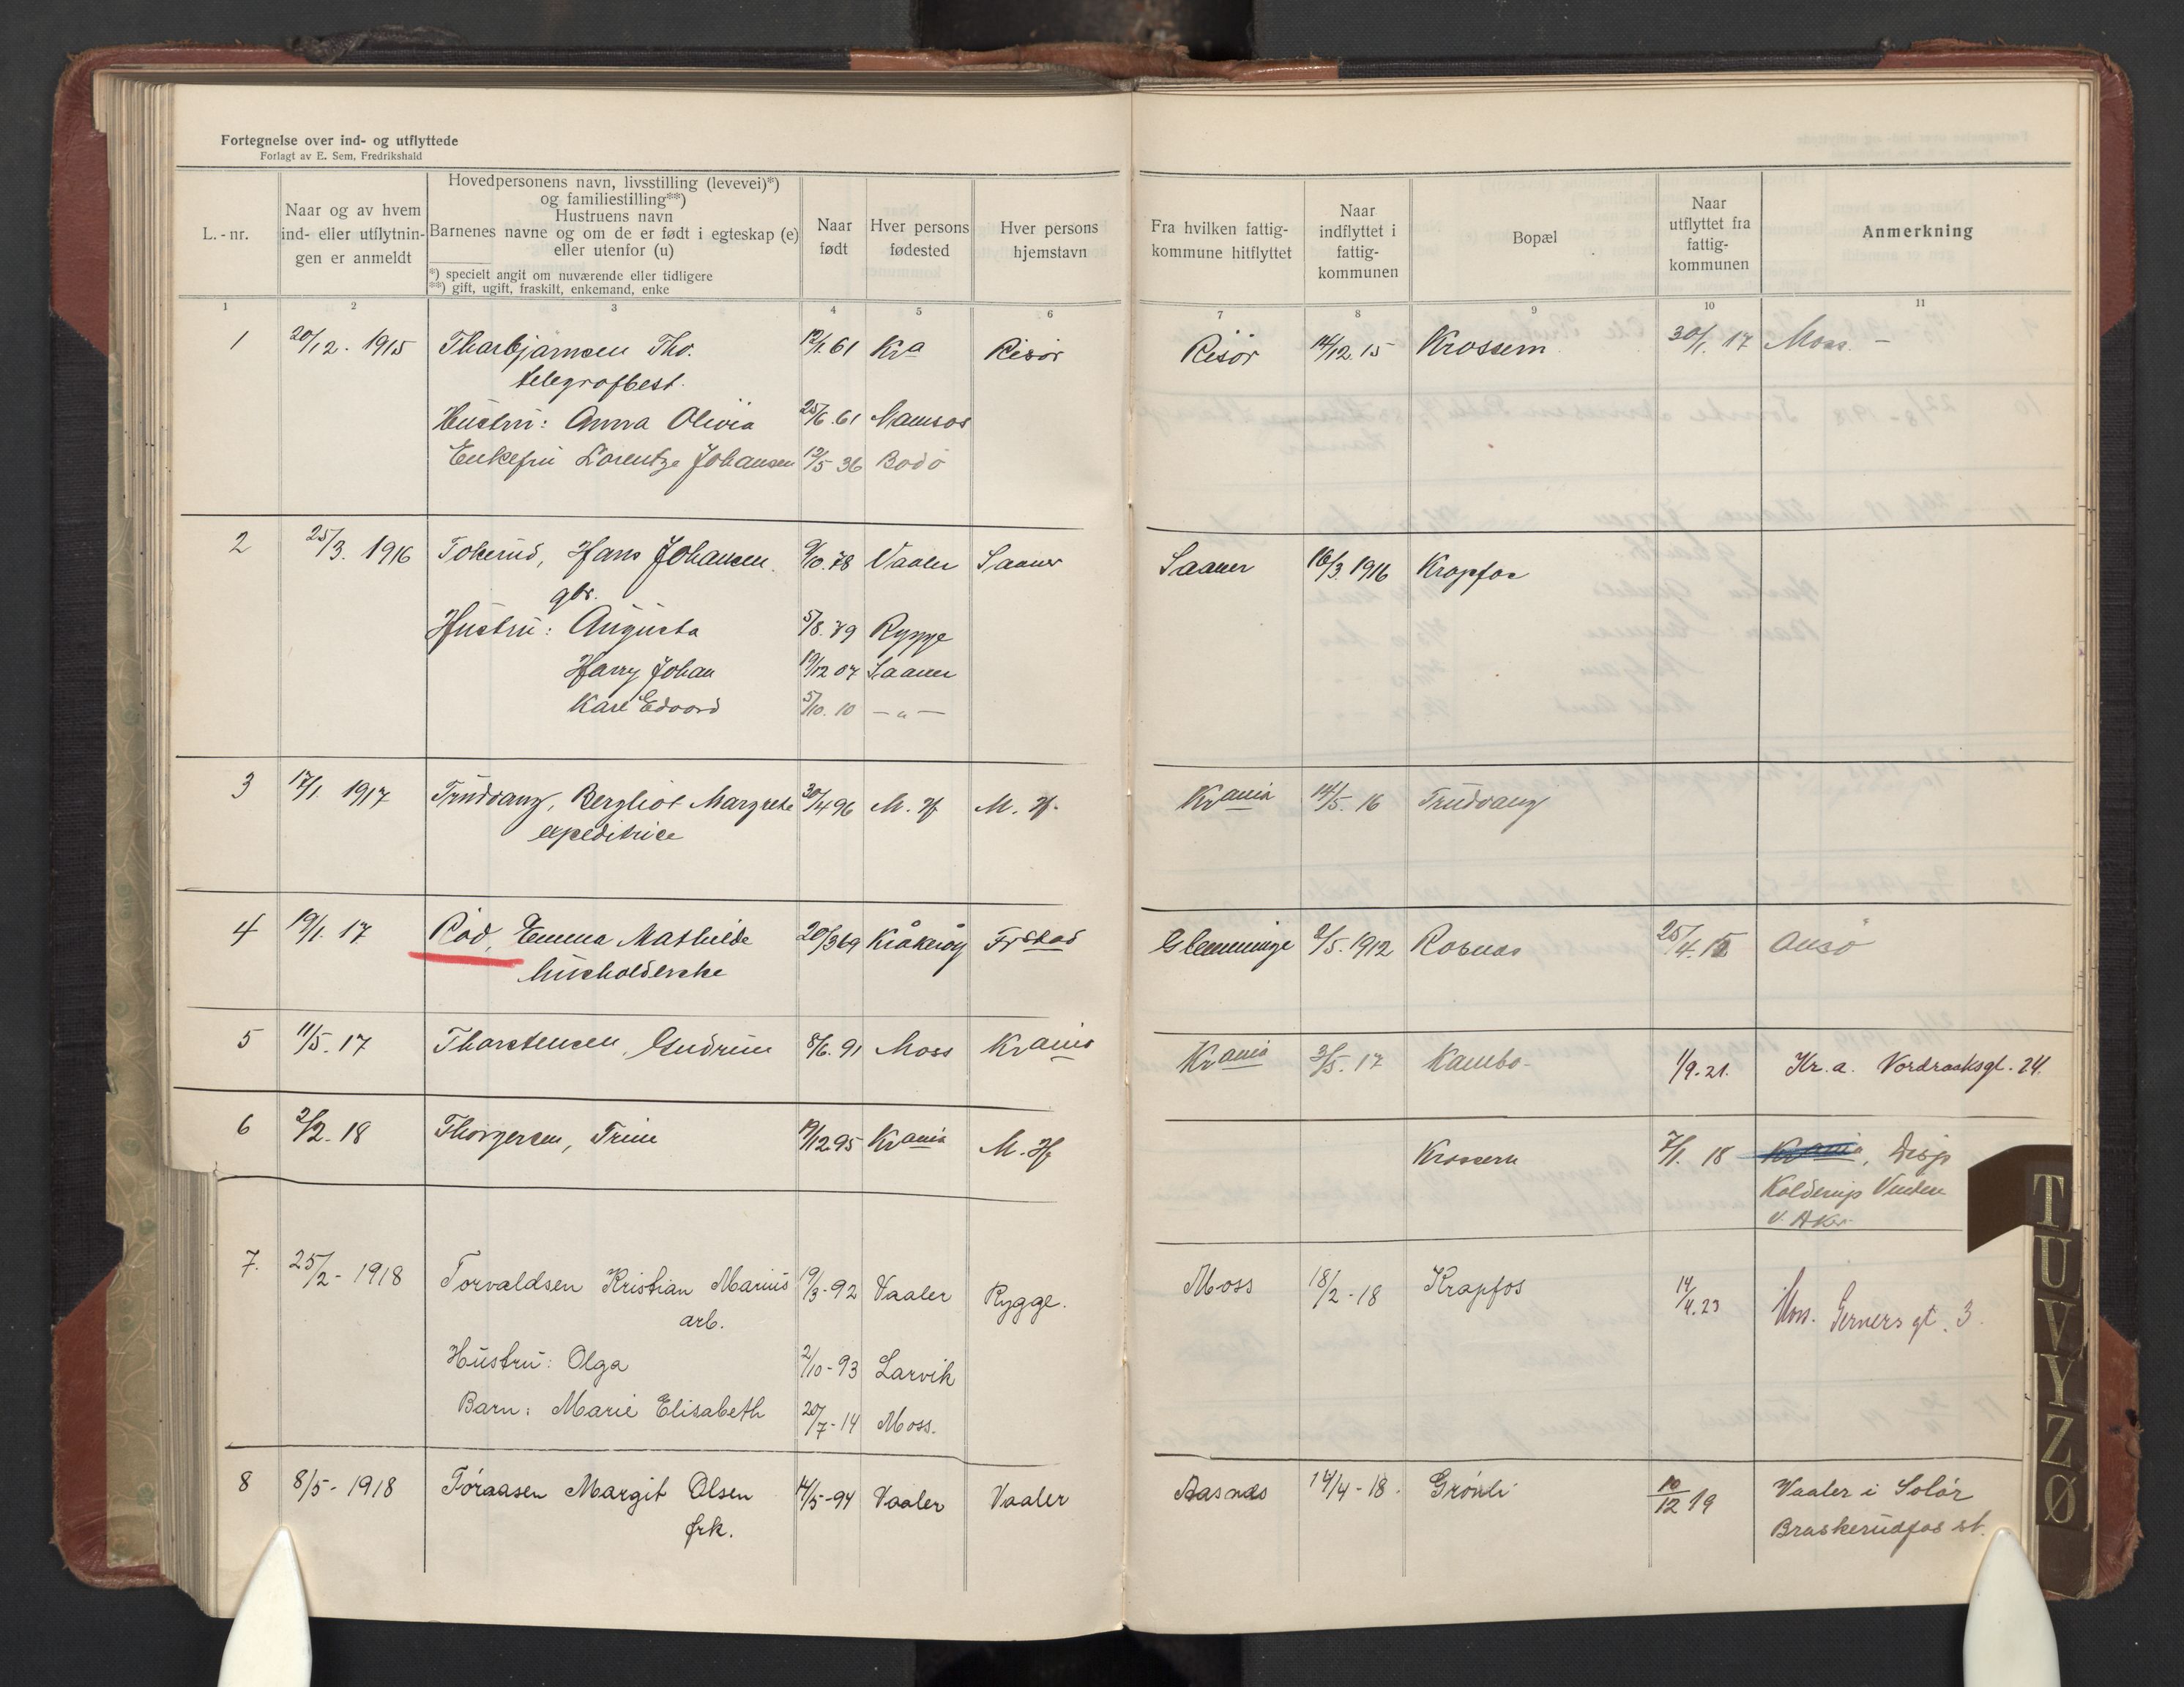 Fortegnelse over ind- og utflyttede
Forlagt av E. Sem, Fredrikshald
L.-nr.
Naar og av hvem ind- eller utflytnin-gen er anmeldt
Hovedpersonens navn, livsstilling (levevei)*)
og familiestilling**)
Hustruens navn
Barnenes navne og om de er født i egteskap (e)
eller utenfor (u)
*) specielt angit om nuværende eller tidligere
**) gift, ugift, fraskilt, enkemand, enke
Naar født
Hver persons fødested
Hver persons hjemstavn
Fra hvilken fattig-kommune hitflyttet
Naar indflyttet i fattig-kommunen
Bopæl
Naar utflyttet fra fattig-kommunen
Anmerkning
1 2 3 4 5 6 7 8 9 10 11
1 20/12. 1915 Thorbjørnsen Tho. 12/1. 61 Kra Risør Risør 14/12 15 Krossern 30/1. 17 Moss. -
telegrafbest.
Hustru: Anna Olivia 25/6. 61 Namsos
Enkefru Lorentze Johansen 12/5 36 Bodø
2 25/3. 1916 Tokerud, Hans Johansen 9/10. 78 Vaaler Saaner Saaner 16/3 1916 Krapfos
gbr.
Hustru: Augusta 5/8. 79 Rygge
Harry Johan 19/12 07 Saaner
Karl Edvard 5/10. 10 — „ —
3 17/1. 1917 Trudvang, Bergliot Margrete 30/4 96 M. Hf M. Hf. Krania 14/5. 16 Trudvang
expeditrice
4 19/1. 17 Röd, Emma Mathilde 20/3 69 Kråkerøy Frstad Glemminge 2/5. 1912 Rosnes 25/4. Onsø
husholderske
5 11/5. 17 Thorstensen, Gudrun 8/6. 91 Moss Krania Krania 3/5. 17 Kambo. 1/9. 21. Kr.a. Nordraaksgt. 24.
6 2/2. 18 Thorgersen, Trine 19/12 95 Krania M. Hf Krossern 7/1. 18 Krania, Disp
Kolderup
V. Aker
7. 25/2 - 1918 Torvaldsen Kristian Marius 19/3 - 92 Vaaler Rygge. Moss 18/2 - 18 Krapfos 14/4. 23 Moss. Gerners gt. 3.
arb.
Hustru: Olga 2/10 - 93 Larvik
Barn: Marie Elisabeth 20/7 - 14 Moss.
8 8/5 - 1918 Toraasen Margit Olsen 14/5 - 94 Vaaler Vaaler Aasnes 14/4 - 18. Grønli 10/12 19 Vaaler i Solør
frk. Braskerudfos st.
T
U
V
Y
Z
Ø